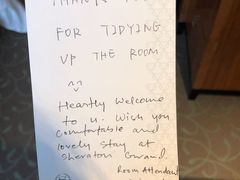 THANK YOU
FOR TIDYING
UP THE ROOM
^^
Heartly Welcome
to u. Wish you
Comfortable and
lovely stay at
Sheraton Grand.
Room Attendant